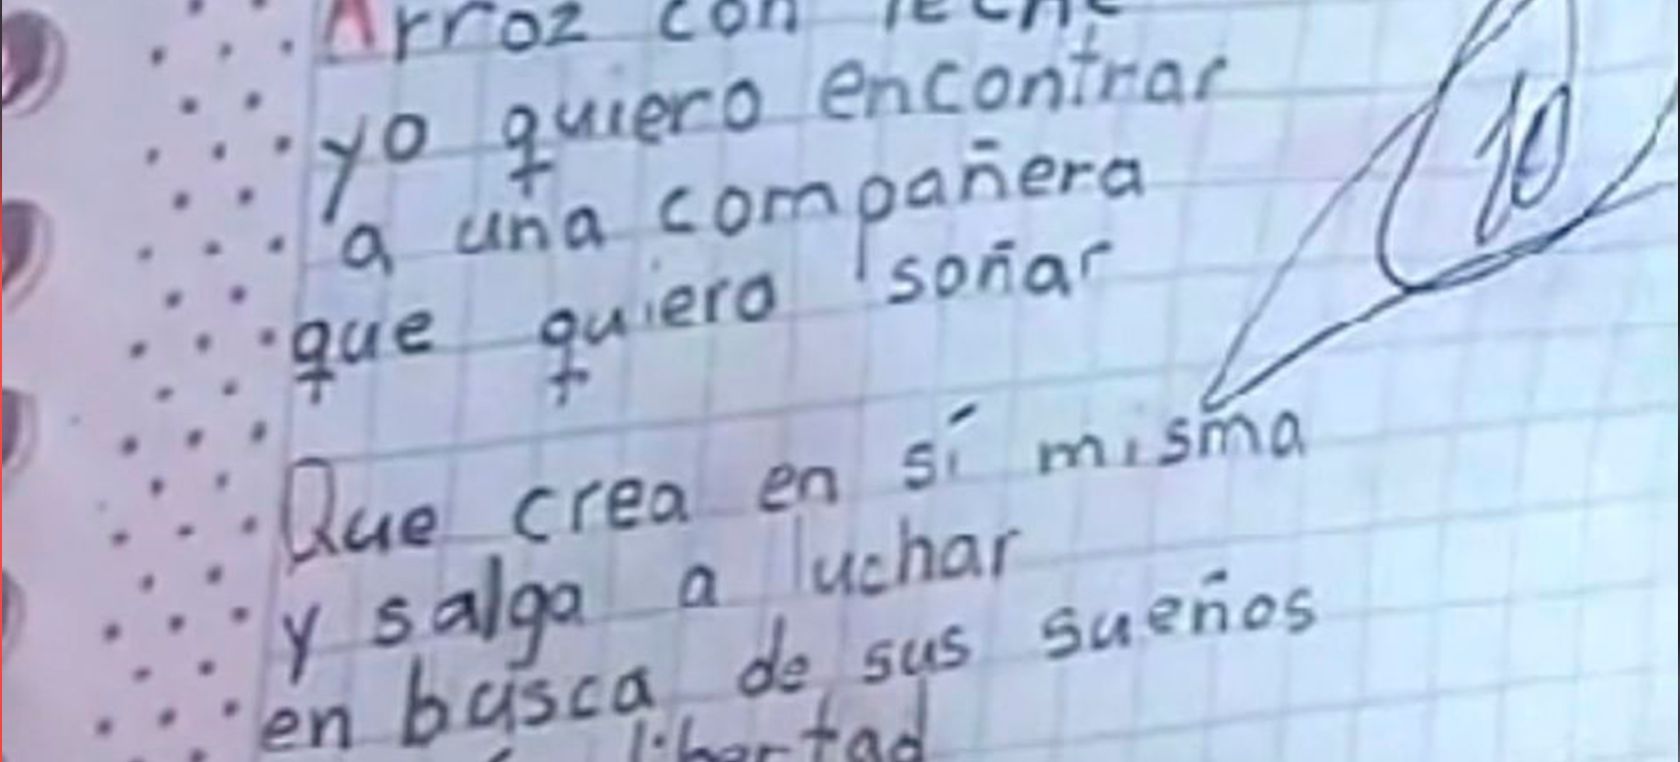 Arroz con leche
yo quiero encontrar
a una compañera
que quiera soñar
Que crea en sí misma
y salga a luchar
en busca de sus sueños
libertad
10